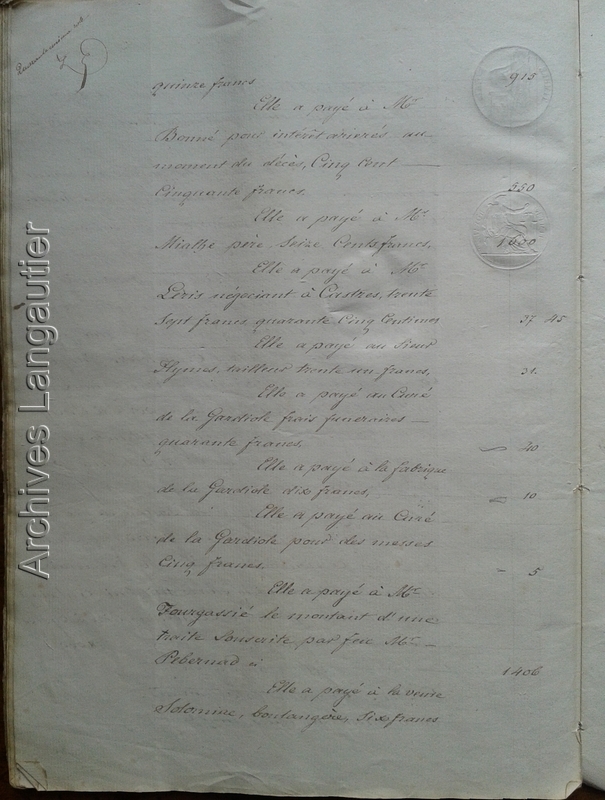 quinze francs 915
Elle a payé à Mr
Bonné pour intérêt arierés au
moment du décès, Cinq Cent
Cinquante francs. 550
Elle a payé à Mr
Mialhe père, Seize Cents francs, 1600
Elle a payé à Mr
Liris négociant à Castres, trente
Sept francs quarante Cinq Centimes 37 45
Elle a payé au Sieur
tailleur trente un francs, 31
Elle a payé au Curé
de la Gardiole frais funeraires
quarante francs, 40
Elle a payé à la fabrique
de la Gardiole dix francs, 10
Elle a payé au Curé
de la Gardiole pour des messes
Cinq francs. 5
Elle a payé à Mr
Fourgassié le montant d'une
traite Souscrite par feu Mr
Pébernad ci 1406
Elle a payé à la veuve
Solomiac, boulangère, Six francs
Archives Langautier